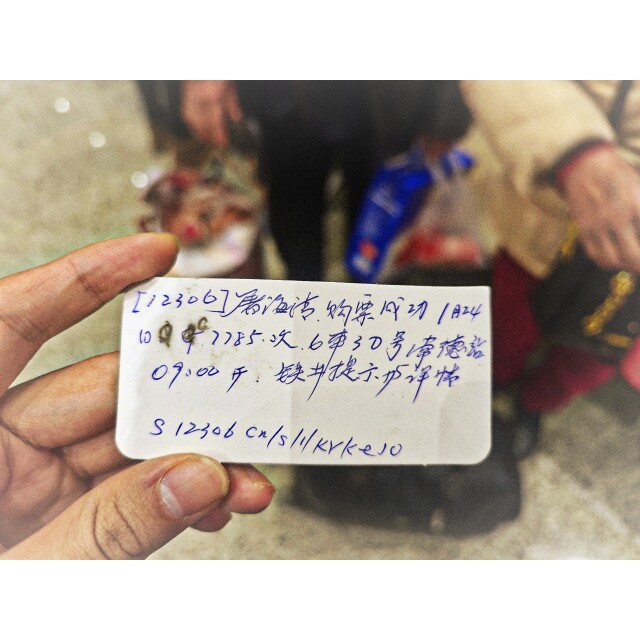 [12306]屠海清.购票成功 1月24
日 7785.次.6车30号常德站
09:00开.铁井提示 详情
S 12306 cn/s/1/krkeJo